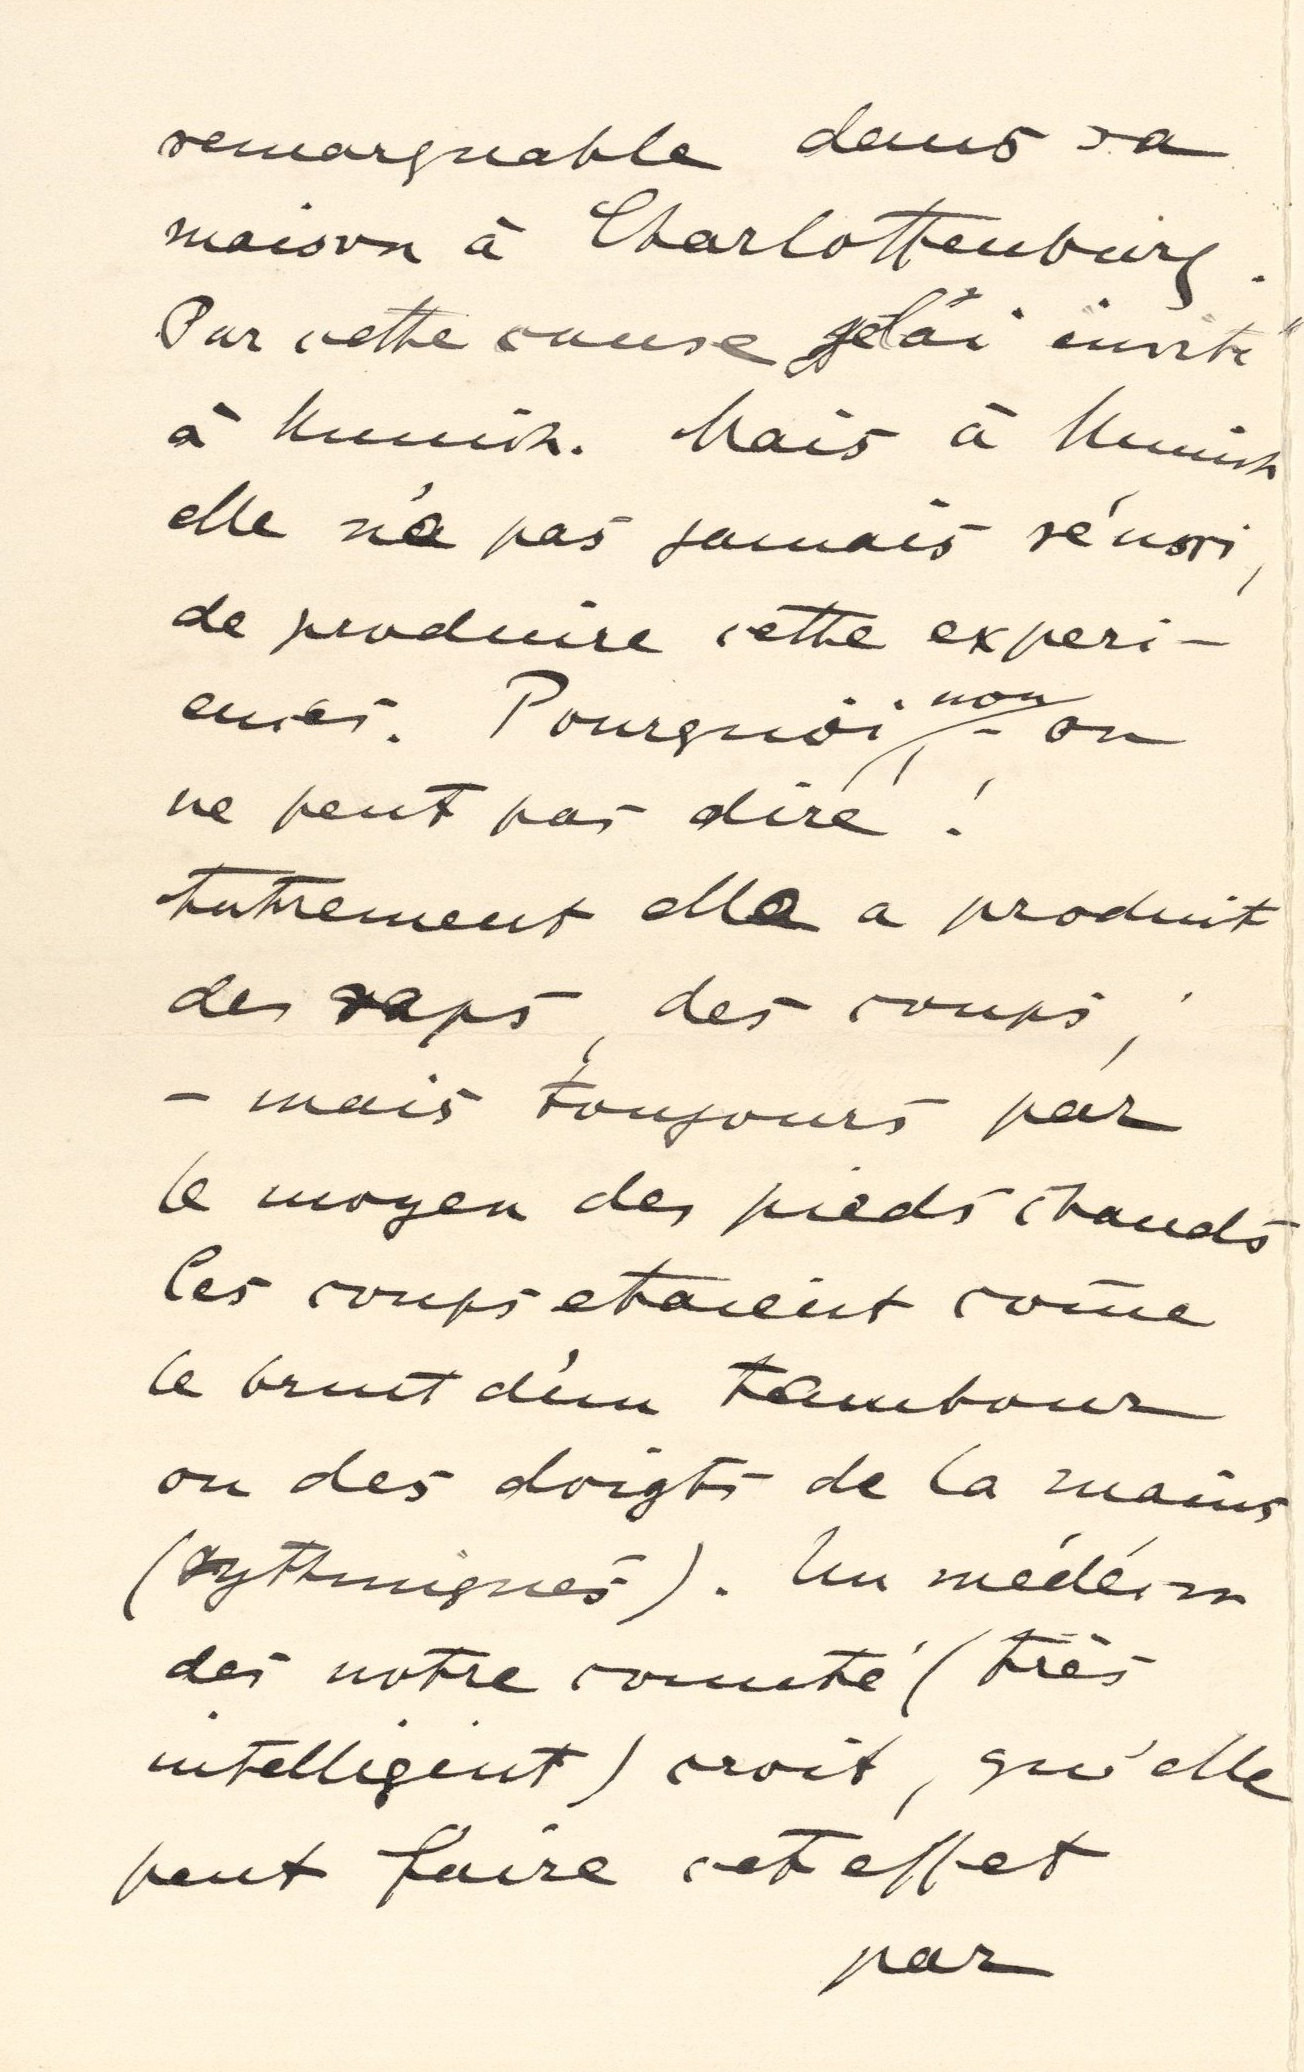 remarquable dans sa
maison à Charlottenburg.
Par cette cause je l'ai invité
à Munich. Mais à Munich
elle n'a pas jamais réussi,
de produire cette experi-
ences. Pourquoi, non, - on
ne peut pas dire!
Autrement elle a produit
des raps, des coups,
- mais toujours par
le moyen des pieds chauds
Les coups etaient com̄e
le bruit d'un tambour
ou des doigts de la mains
(rythmiques). Un médécin
des notre comité (très
intelligent) croit, qu'elle
peut faire cet effet
par